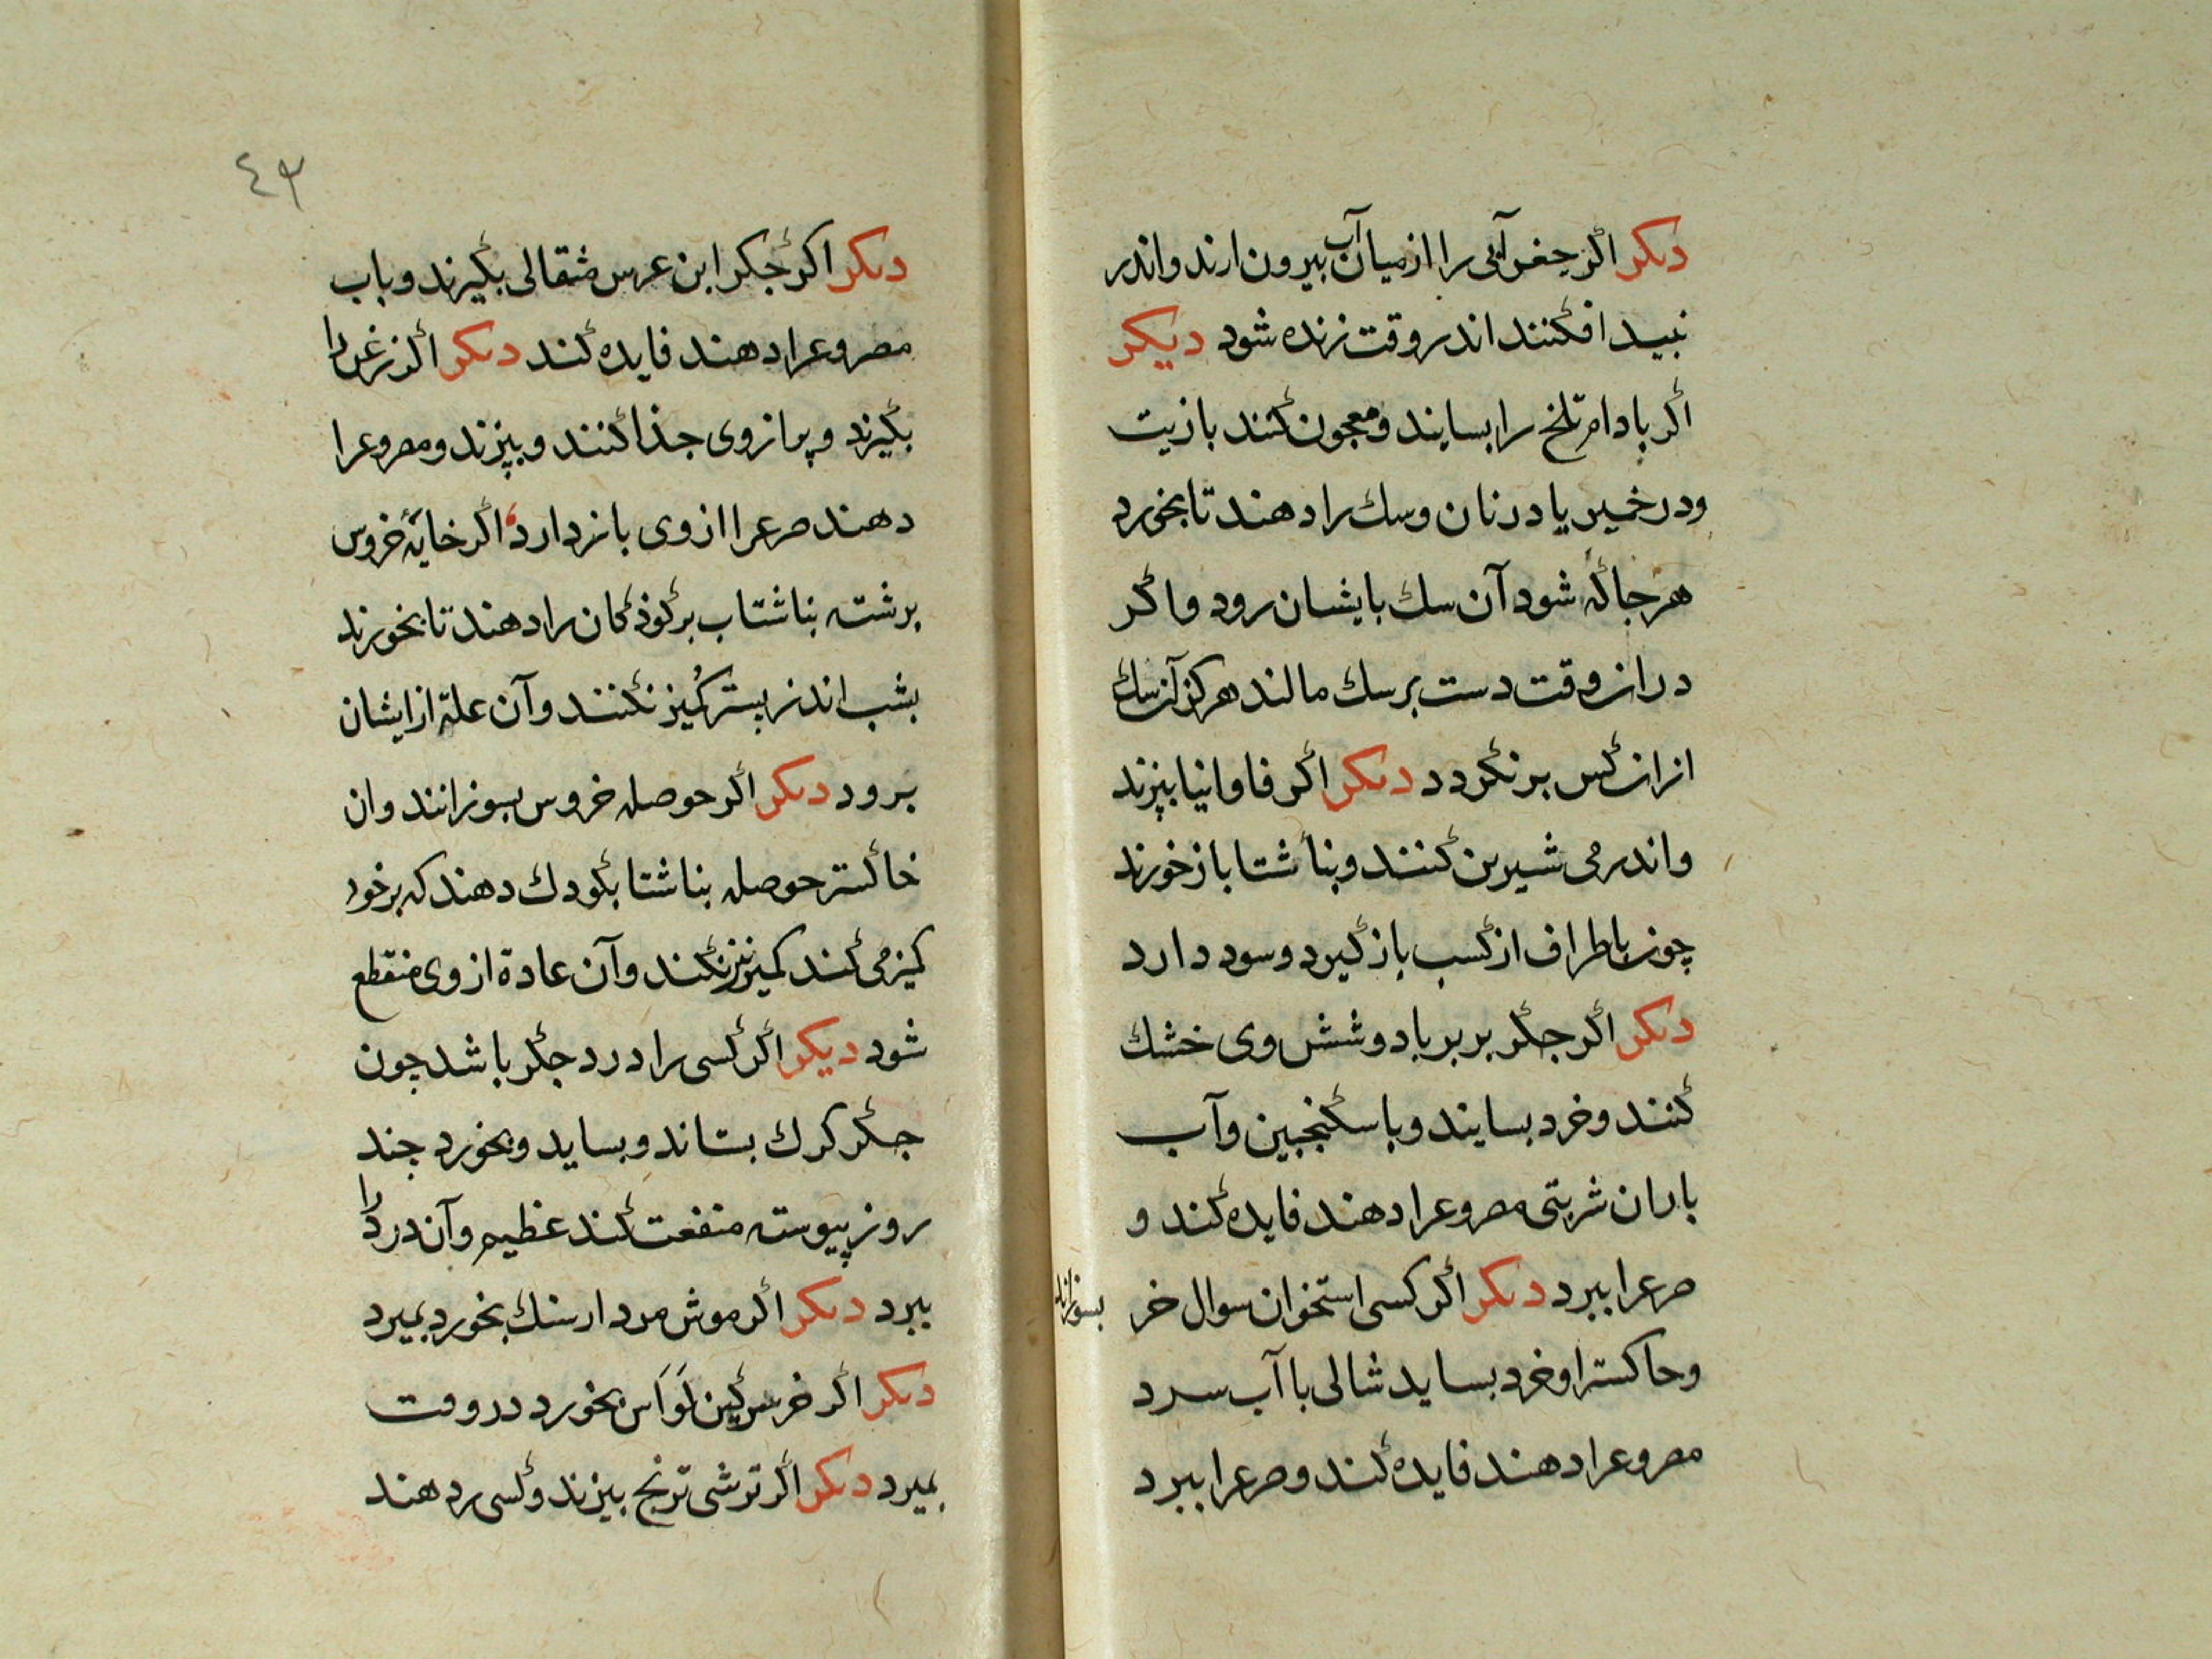 دیکر اکر جغن آبی را از میان آب بیرون ارند و اندر
نبید افکنند اندر وقت زنده شود دیکر
اکر بادام تلخ را بسایند و معجون کنند با زیت
ودر خمیر یا در نان و سك را دهند تا بخورد
هر جا که شود آن سك با یشان رود و اکر
در ان وقت دست بر سك مالند هرکز آن سك
از ان کس بر نکردد دیکر اکر فاوانیا بپزند
و اندر می شیرین کنند و بنا شتا باز خورند
چون باطراف از کسب باز کیرد و سود دارد
دیکر اکر جکر بربر یا دو شش وی خشك
کنند و خرد بسایند و با سکنجبین و آب
باران شربتی مصروعرا دهند فایده کند و
صرعرا ببرد دیکر اکر کسی استخوان سوال خر بسوزاند
وحاکستر او خرد بساید شالی با آب سرد
مصروعرا دهند فایده کند و صرعرا ببرد
٤٣
دیکر اکر جکر ابن عرس مثقالی بکیرند و باب
مصروعرا دهند فایده کند دیکر اکر زغن را
بکیرند و پر از وی جذا کنند و بپزند و مصروعرا
دهند صرعرا از وی باز دارد اکر خایۀ خروس
برشته بناشتاب بر کوذکان را دهند تا بخورند
بشب اندر بستر کمیز نکنند و آن علة از ایشان
برود دیکر اکر حوصله خروس بسوزانند و ان
خاکستر حوصله بناشتا بکودك دهند که بر خود
کمیز می کند کمیز نیز نکند و آن عادة از وی منقطع
شود دیکر اکر کسی را درد جکر باشد چون
جکر کرك بستاند و بساید و بخورد چند
روز پیوسته منفعت کند عظیم و آن درد را
ببرد دیکر اکر موش مردار سنك بخورد بمیرد
دیکر اکر خر سرکین بخورد در وقت
بمیرد دیکر اکر ترشی ترنج بپزند و کسی ر دهند